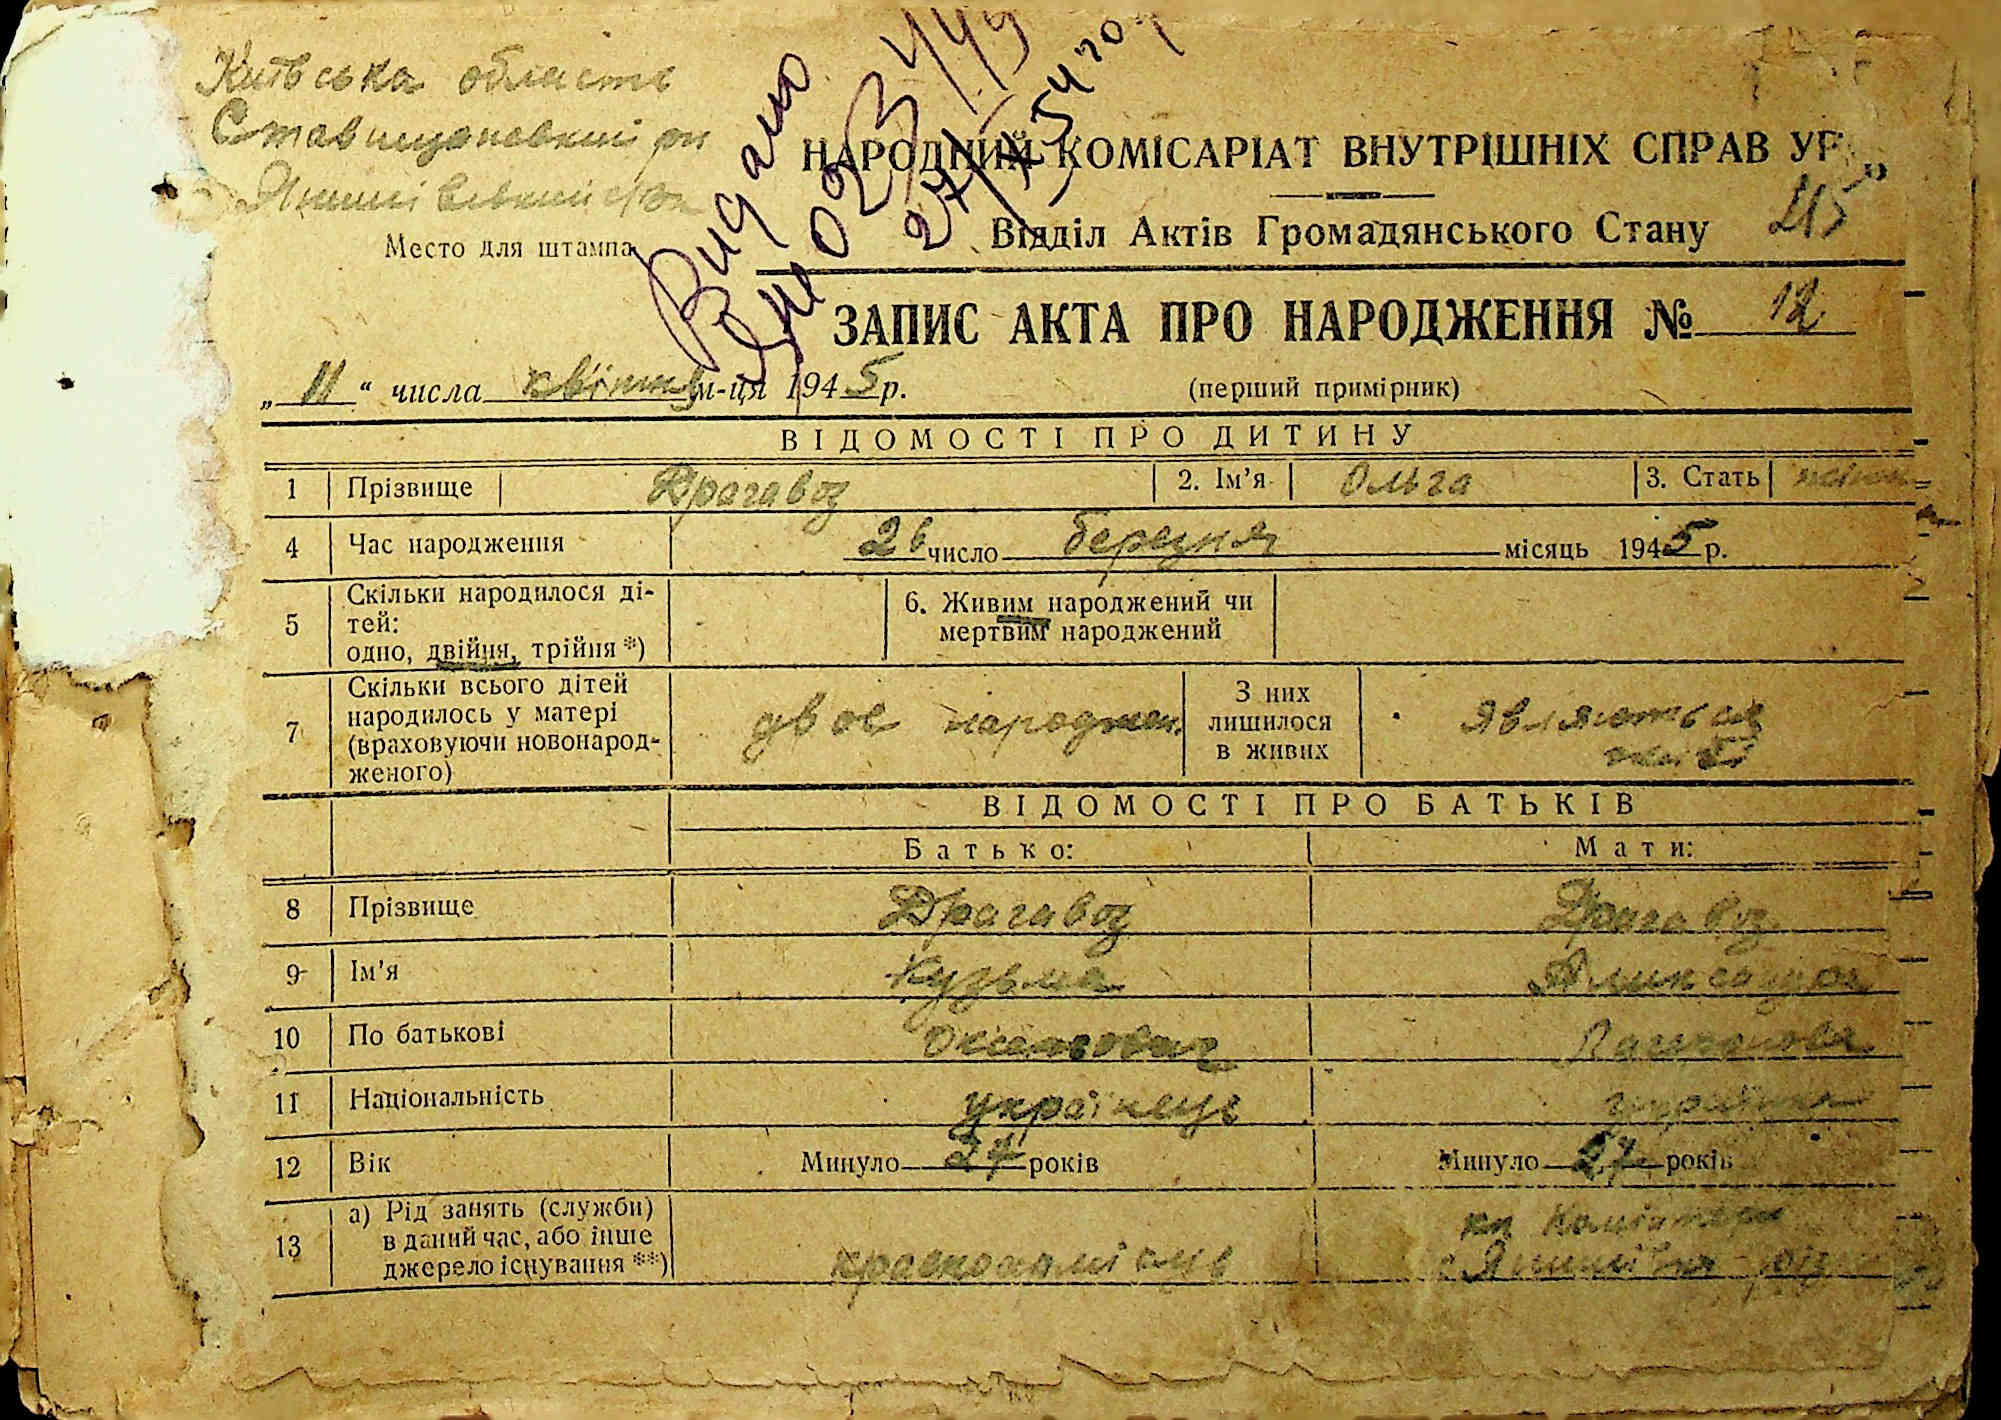 Київська область
Ставищанський рн
Видано
023444
НАРОДНИЙ КОМІСАРІАТ ВНУТРІШНІХ СПРАВ УР
Место для штампа
Відділ Актів Громадянського Стану
ЗАПИС АКТА ПРО НАРОДЖЕННЯ № 12
„ 11 “ числа квітня м-ця 1945 р.
(перший примірник)
ВІДОМОСТІ ПРО ДИТИНУ
1 Прізвище Драгавоз 2. Ім'я Ольга 3. Стать
4 Час народження 26 число березня місяць 1945 р.
5 Скільки народилося ді-
тей:
одно, двійня, трійня *)
6. Живим народжений чи
мертвим народжений
7 Скільки всього дітей
народилось у матері
(враховуючи новонарод-
женого)
двое народжен.
З них
лишилося
в живих
являються
ВІДОМОСТІ ПРО БАТЬКІВ
Батько: Мати:
8 Прізвище Драгавоз Драгавоз
9 Ім'я Кузьма
10 По батькові
11 Національність українець українка
12 Вік Минуло 27 років Минуло 27 років
13 а) Рід занять (служби)
в даний час, або інше
джерело існування **)